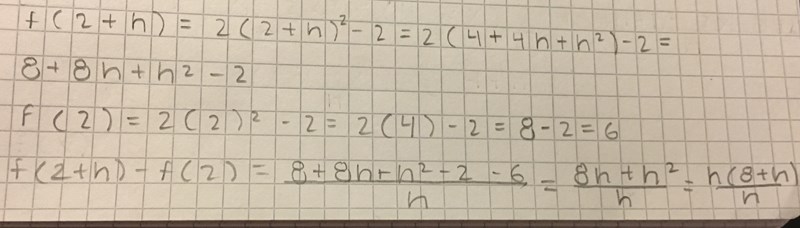 f(2+h) = 2(2+h)²-2 = 2(4+4h+h²)-2 =
8+8h+h²-2
f(2) = 2(2)²-2 = 2(4)-2 = 8-2 = 6
f(2+h)-f(2) = (8+8h+h²-2-6)/h = (8h+h²)/h = h(8+h)/h